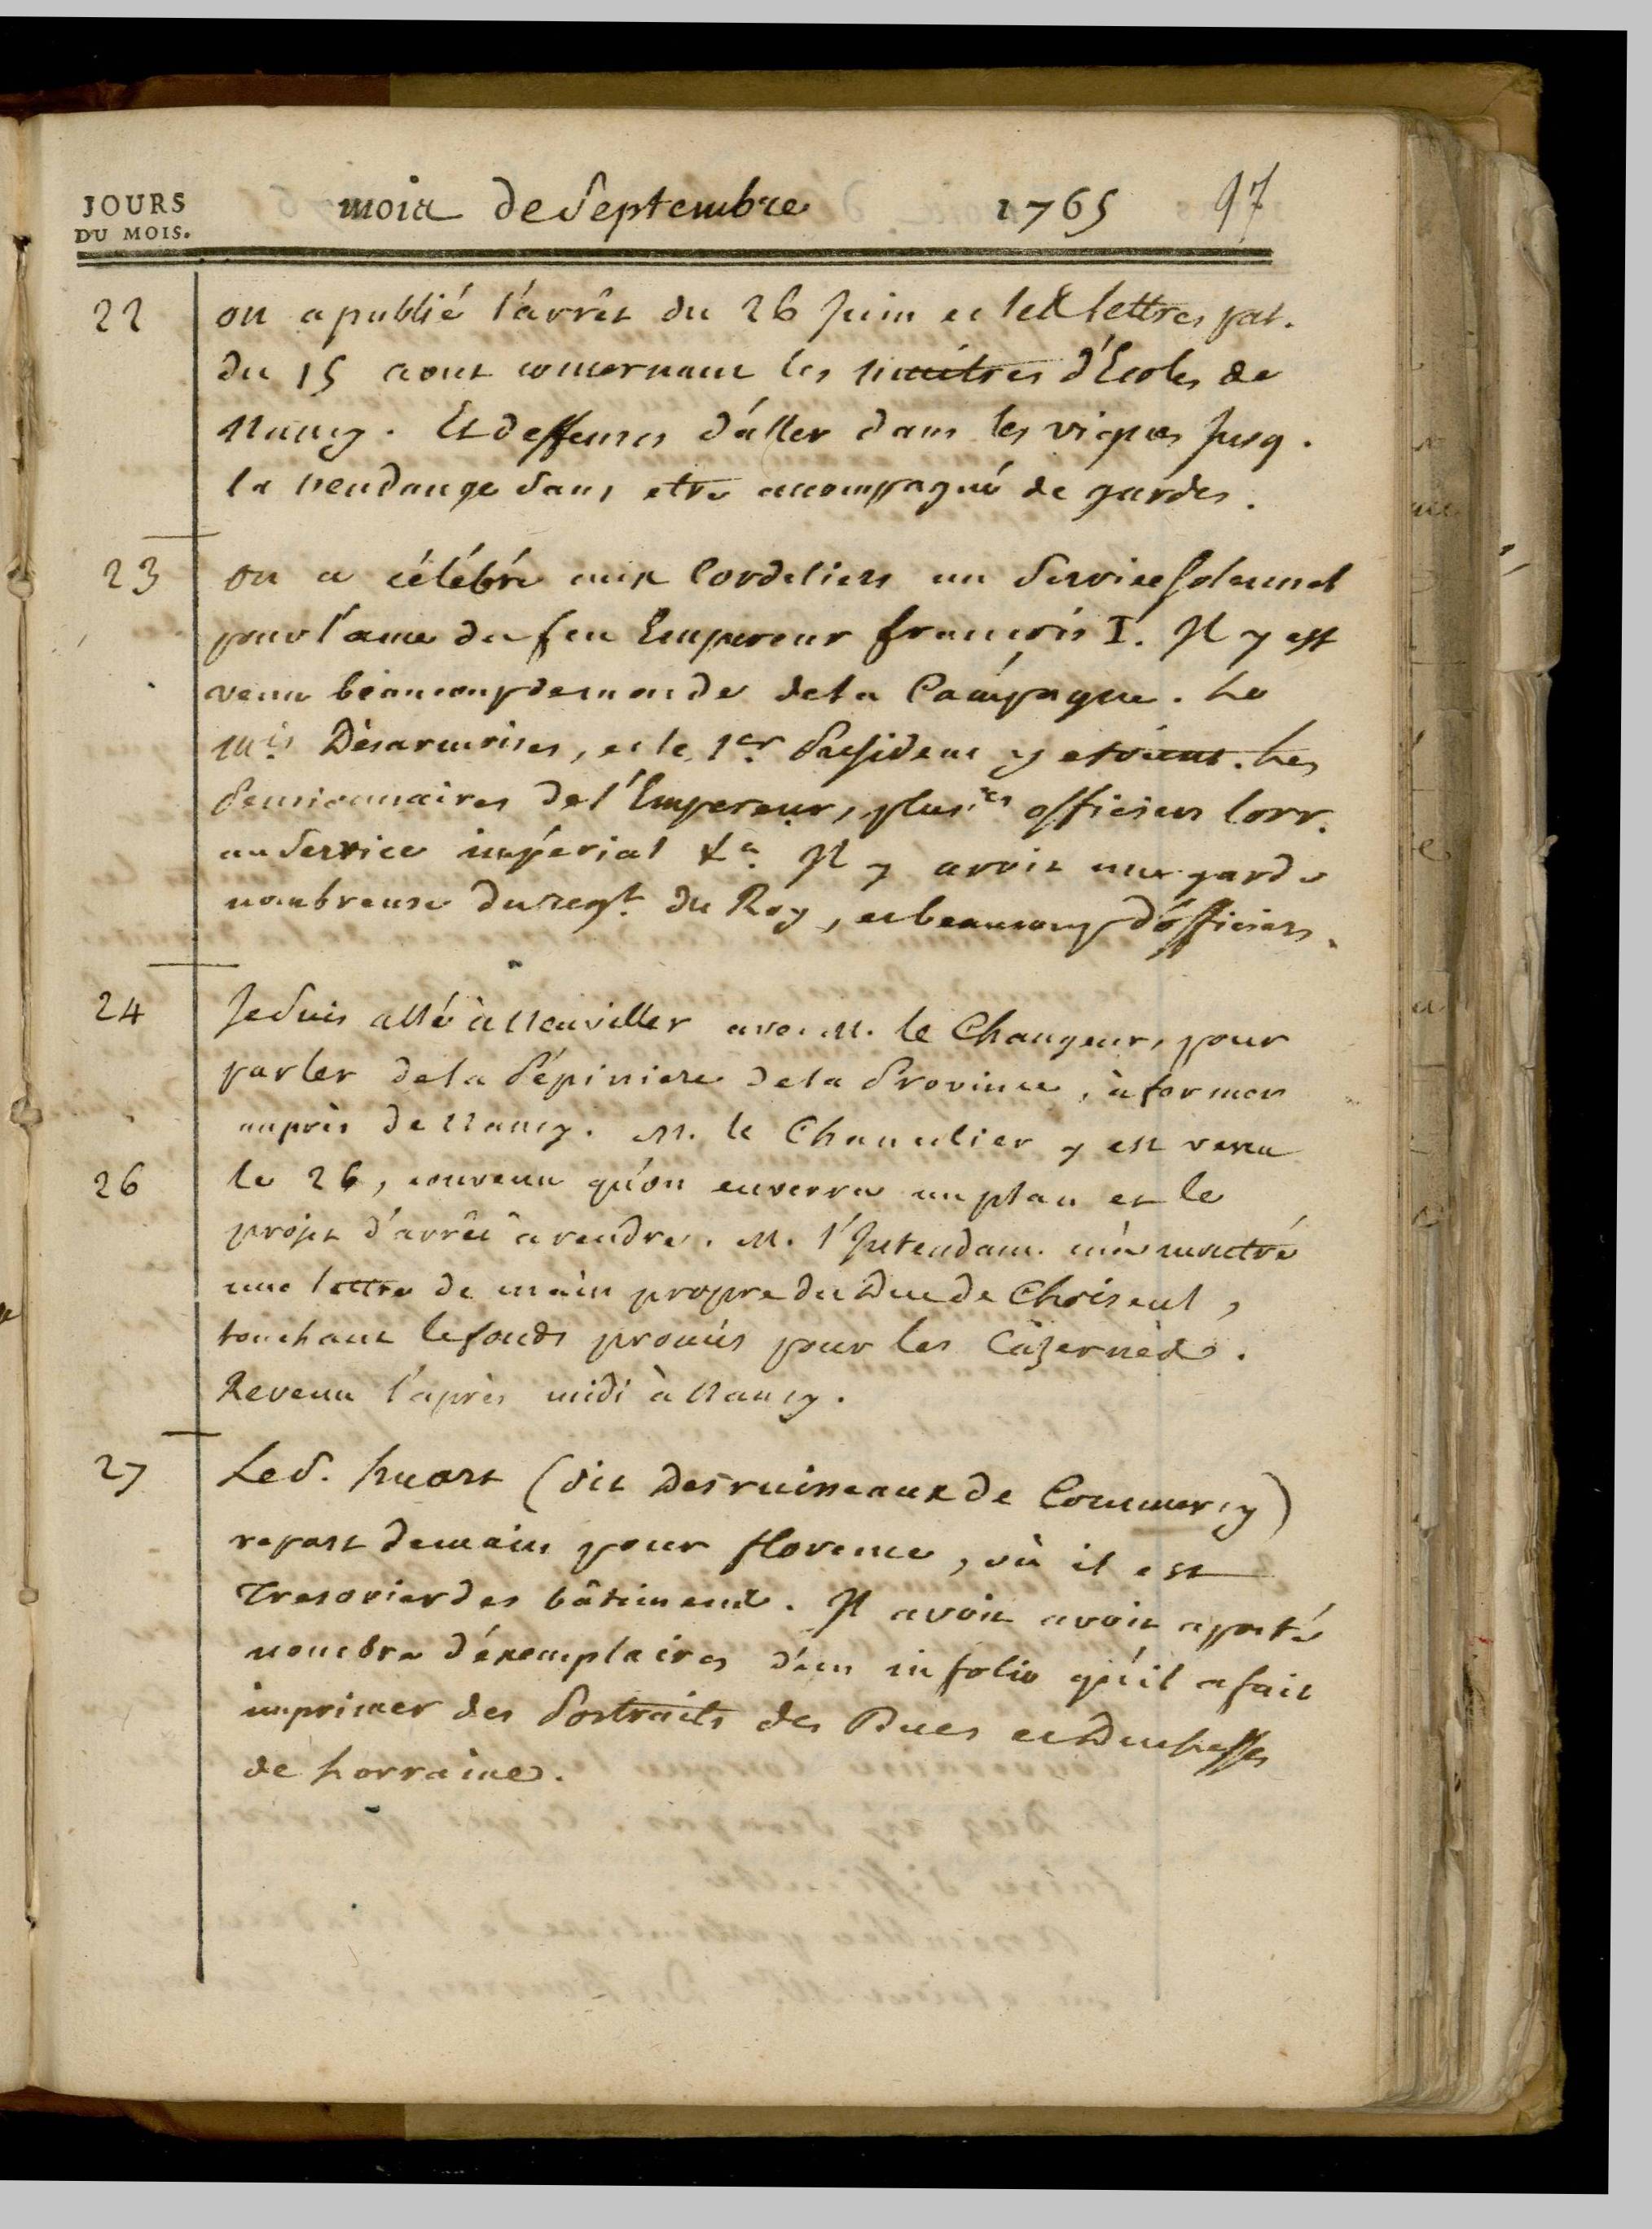 JOURS
DU MOIS.
mois de Septembre 1765 97
22 on a publié l'arrêt du 26 Juin et les lettres pat.
du 15 aout concernant les maitres d'Ecoles de
Nancy. Et deffenses d'aller dans les vignes jusq.
la vendange sans etre accompagné de gardes.
23 on a célébré aux Cordeliers un Service solemnel
pour l'ame du feu Empereur françois I. Il y est
venu beaucoup de monde de la Campagne. Le
Mis Désarmoises, et le 1er Président y etoient. Les
Pensionnaires de l'Empereur, plusrs officiers lorr.
au Service impérial &a. Il y avoit une garde
nombreuse du regt. du Roy, et beaucoup d'officiers.
24 Je suis allé à Neuviller avec M. le Changeur, pour
parler de la Pépiniere de la Province, à former
auprès de Nancy. M. le Chancelier y est venu
26 le 26, convenu qu'on enverra un plan et le
projet d'arrêt à rendre. M. l'Intendant m'a montré
une lettre de main propre du Duc de Choiseul,
touchant le fonds promis pour les Cazernes.
Revenu l'après midi à Nancy.
27 Le S. huart (dit Desruisseaux de Commercy)
repart demain pour florence, où il est
Tresorier des bâtimens. Il avoit avoit aporté
nombre d'éxemplaires d'un in folio qu'il a fait
imprimer des Portraits des Ducs et Duchesses
de Lorraine.